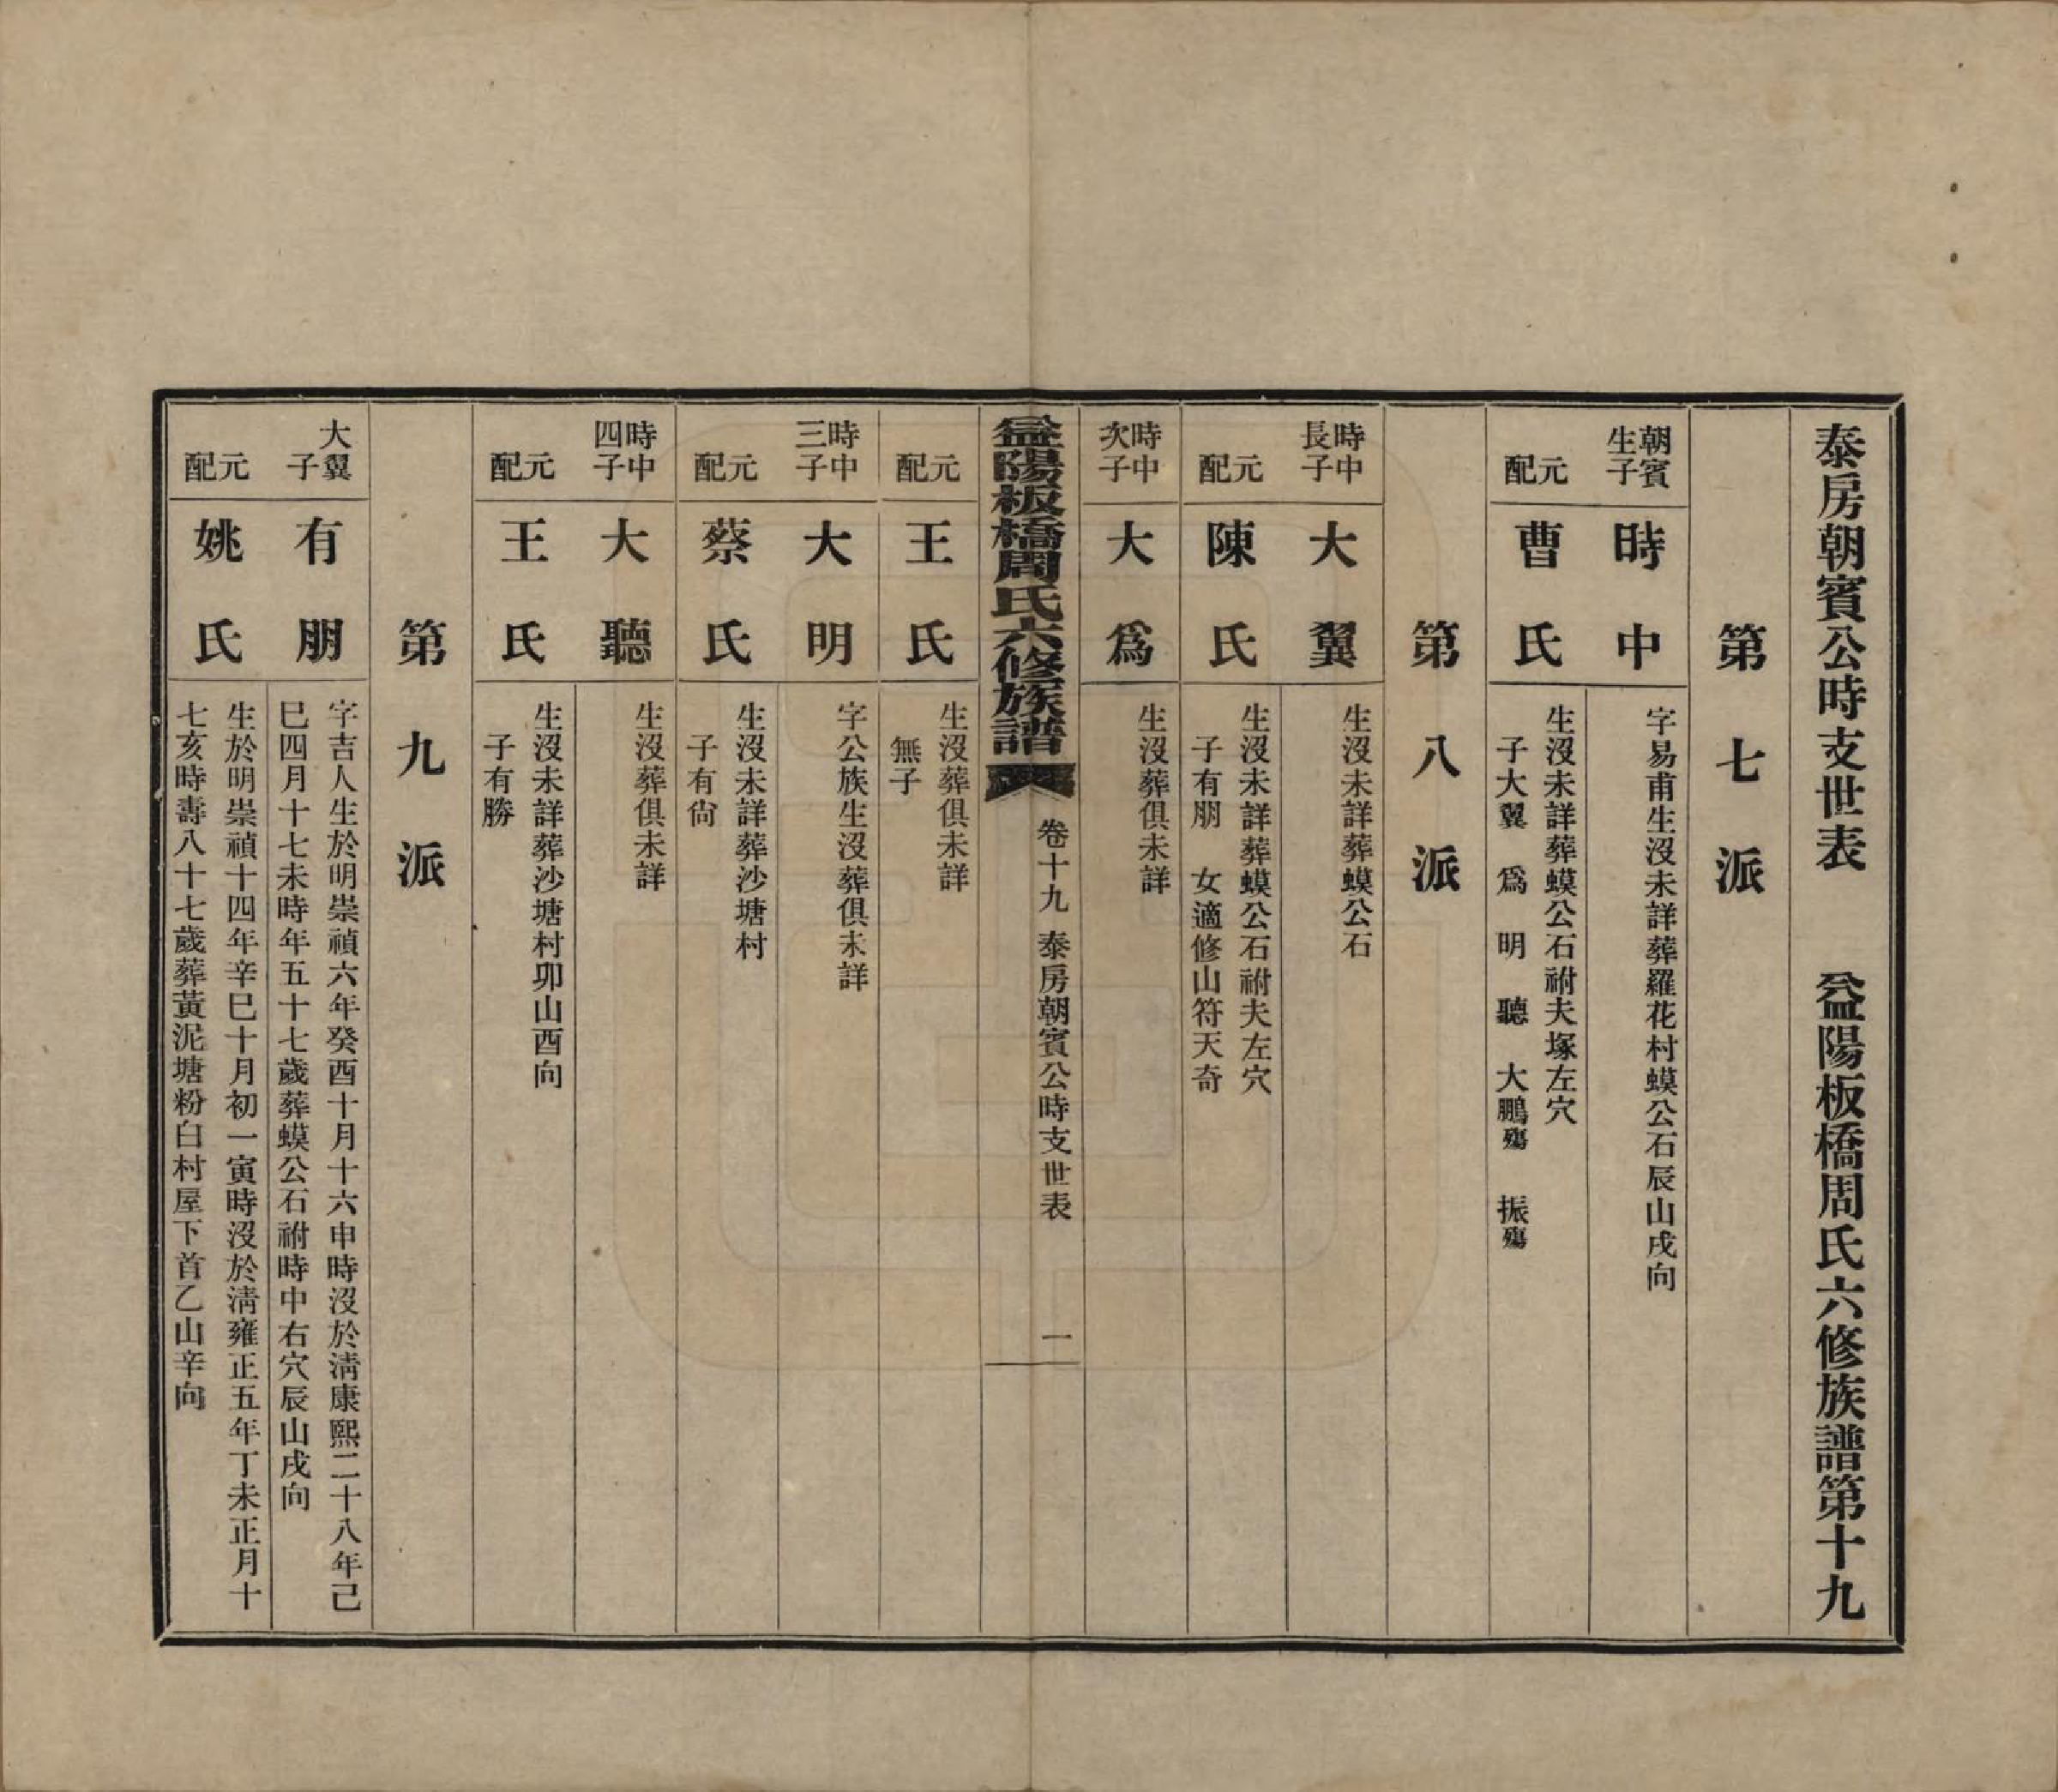 泰房朝賓公時支世表　益陽板橋周氏六修族譜第十九
第七派
朝賓生子
時中
字易甫生沒未詳葬羅花村蟆公石辰山戌向
元配
曹氏
生沒未詳葬蟆公石祔夫塚左穴
子大翼　爲　明　聽　大鵬殤　振殤
第八派
時中長子
大翼
生沒未詳葬蟆公石
元配
陳氏
生沒未詳葬蟆公石祔夫左穴
子有朋　女適修山符天奇
時中次子
大爲
生沒葬俱未詳
益陽板橋周氏六修族譜
卷十九　泰房朝賓公時支世表
一
元配
王氏
生沒葬俱未詳
無子
時中三子
大明
字公族生沒葬俱未詳
元配
蔡氏
生沒未詳葬沙塘村
子有尙
時中四子
大聽
生沒葬俱未詳
元配
王氏
生沒未詳葬沙塘村卯山酉向
子有勝
第九派
大翼子
有朋
字吉人生於明崇禎六年癸酉十月十六申時沒於淸康熙二十八年己
巳四月十七未時年五十七歲葬蟆公石祔時中右穴辰山戌向
元配
姚氏
生於明崇禎十四年辛巳十月初一寅時沒於淸雍正五年丁未正月十
七亥時壽八十七歲葬黃泥塘粉白村屋下首乙山辛向